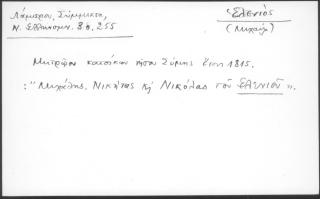 Λάμπρου, Σύμμικτα,
Ν. Ελληνομν. 8ος, 255
Ἑλενιός
(Μιχαήλ)
Μητρῶον κατοίκων νήσου Σύμης ἔτους 1815.
: "Μιχάλης, Νικήτας κỳ Νικόλας τοῦ Ἑλενιοῦ".